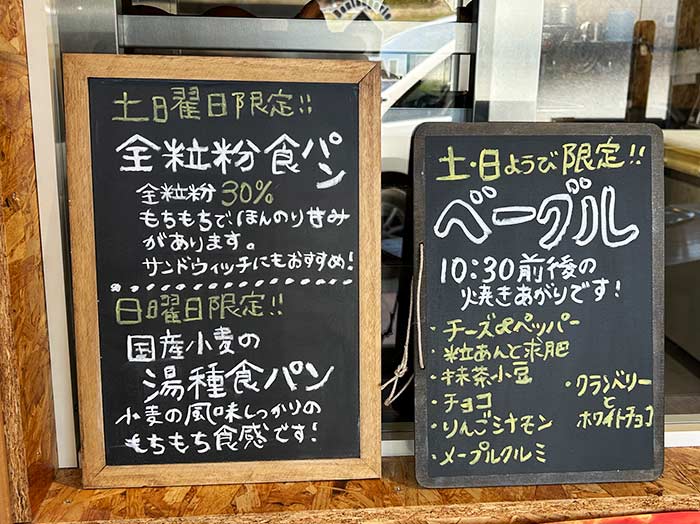 土日曜日限定!!
全粒粉食パン
全粒粉30%
もちもちでほんのり甘み
があります。
サンドウィッチにもおすすめ!
日曜日限定!!
国産小麦の
湯種食パン
小麦の風味しっかりの
もちもち食感です!
土・日ようび限定!!
ベーグル
10:30前後の
焼きあがりです!
・チーズ&ペッパー
・粒あんと求肥
・抹茶小豆
・チョコ
・りんごシナモン
・メープルクルミ
・クランベリー
と
ホワイトチョコ